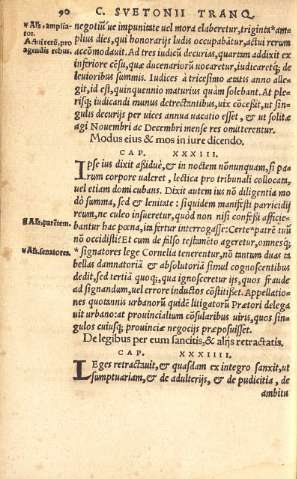 90 C. SVETONII TRANQ
negotiũ'ue impunitate uel mora elaberetur, triginta amplius dies, qui honorarijs ludis occupabãtur, actui rerum
accõmodauit. Ad tres iudicũ decurias, quartam addixit ex
inferiore cẽsu, quæ ducenariorũ uocaretur, iudicaretq́; de
leuioribus summis. Iudices à tricesimo ætatis anno allegit, id est, quinquennio maturius quàm solebant. At plerisq́; iudicandi munus detrectantibus, uix cõcessit, ut singulis decurijs per uices annua uacatio esset, & ut solitæ
agi Nouembri ac Decembri mense res omitterentur.
Modus eius & mos in iure dicendo.
CAP. XXXIII.
Ipse ius dixit aßiduè, & in noctem nonnunquam, si parum corpore ualeret, lectica pro tribunali collocata,
uel etiam domi cubans. Dixit autem ius nõ diligentia modò summa, sed & lenitate: siquidem manifesti parricidij
reum, ne culeo insueretur, quòd non nisi confeßi afficiebantur hac pœna, ita fertur interrogasse: Certe patrẽ tuũ
nõ occidisti? Et cum de falso testamẽto ageretur, omnesq́;
signatores lege Cornelia tenerentur, nõ tantum duas tabellas damnatoriã & absolutoriã simul cognoscentibus
dedit, sed tertiã quoq́;, qua ignosceretur ijs, quos fraude
ad signandum, uel errore inductos cõstitisset. Appellationes quotannis urbanorũ quide litigatorũ Prætori delegauit urbano: at prouincialium cõsularibus uiris, quos singulos cuiusq́; prouinciæ negocijs præposuisset.
De legibus per eum sancitis, & alijs retractatis.
CAP. XXXIIII.
Leges retractauit, & quasdam ex integro sanxit, ut
sumptuariam, & de adulterijs, & de pudicitia, de
ambitu
Als. partem.
Als. senatores.